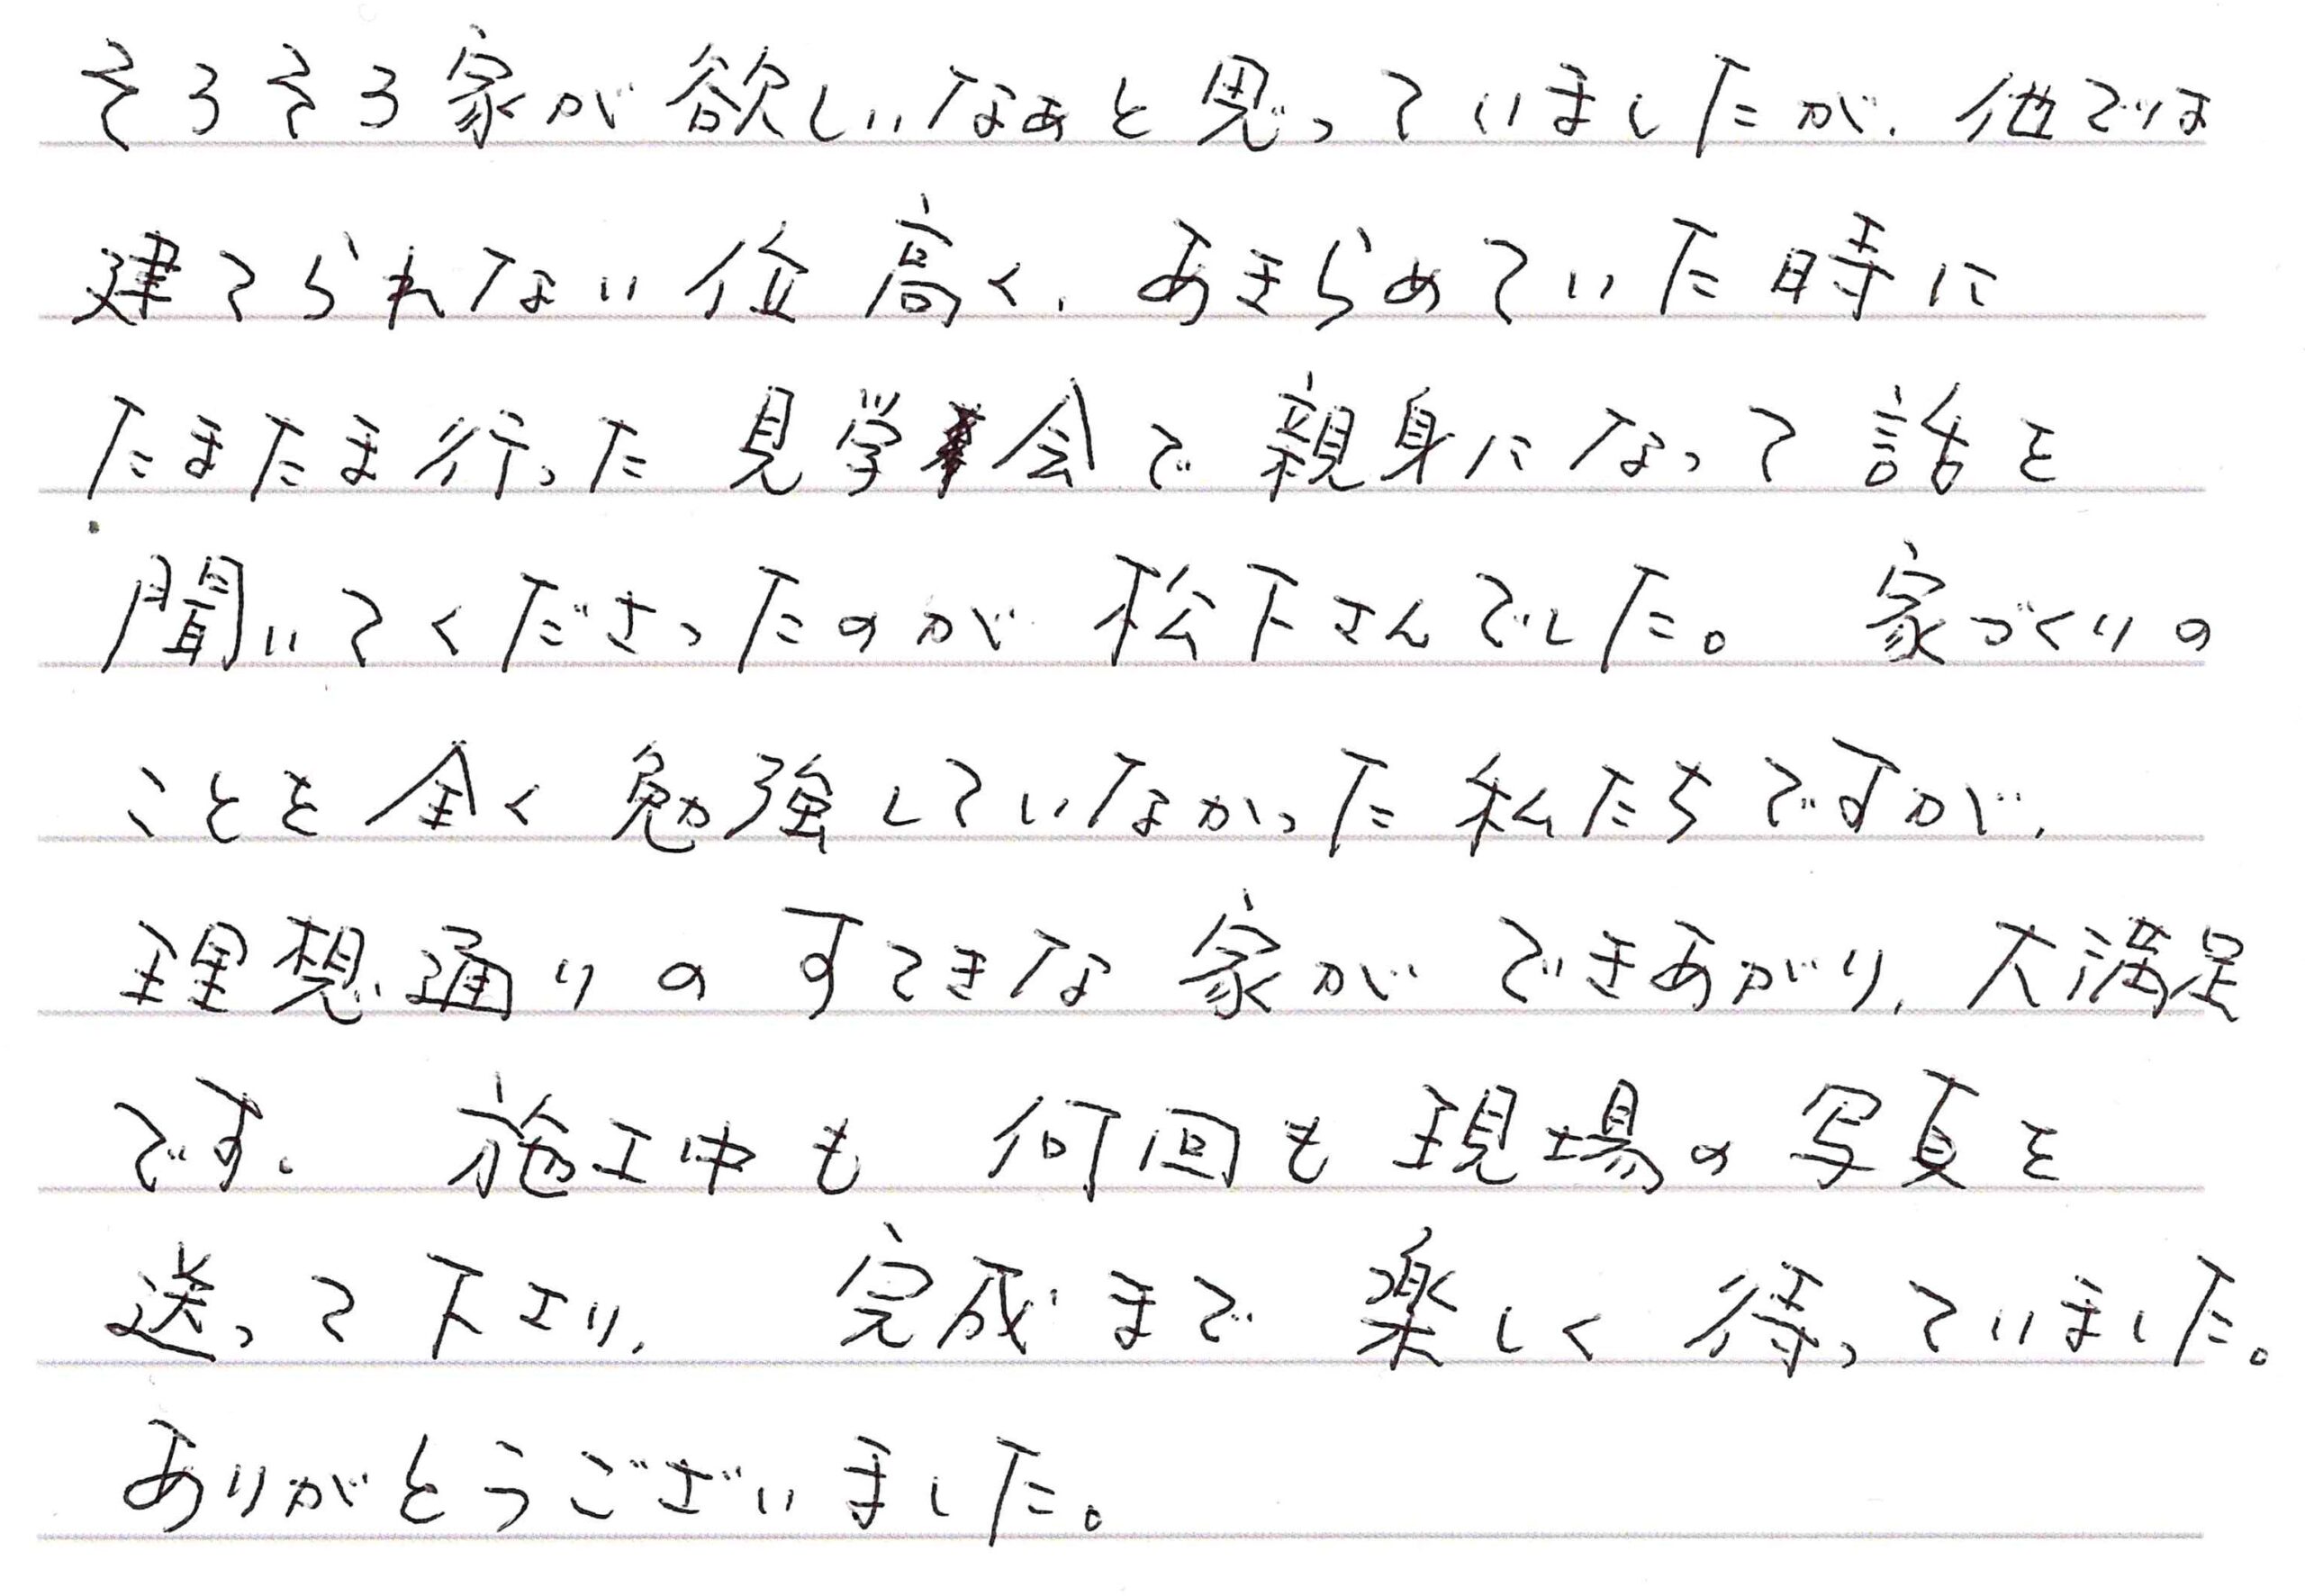 そろそろ家が欲しいなぁと思っていましたが、他では
建てられない位高く、あきらめていた時に
たまたま行った見学会で親身になって話を
聞いてくださったのが松下さんでした。家づくりの
ことを全く勉強していなかった私たちですが、
理想通りのすてきな家ができあがり、大満足
です。施工中も何回も現場の写真を
送って下さり、完成まで楽しく待っていました。
ありがとうございました。